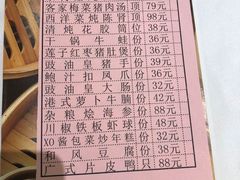 客家梅菜猪肉汤 顶 79元
西洋菜炖陈肾 顶 98元
清炖花胶筒 位 38元
干锅牛蛙 份 36元
莲子红枣猪肚煲 份 36元
豉油皇猪手 份 39元
鲍汁扣凤爪 份 36元
豉油皇大肠 份 32元
港式萝卜牛腩 份 42元
杂粮烩海参 份 88元
川椒铁板虾球 份 48元
XO酱包菜炒年糕 份 32元
和风豆腐 份 38元
广式片皮鸭 只 88元